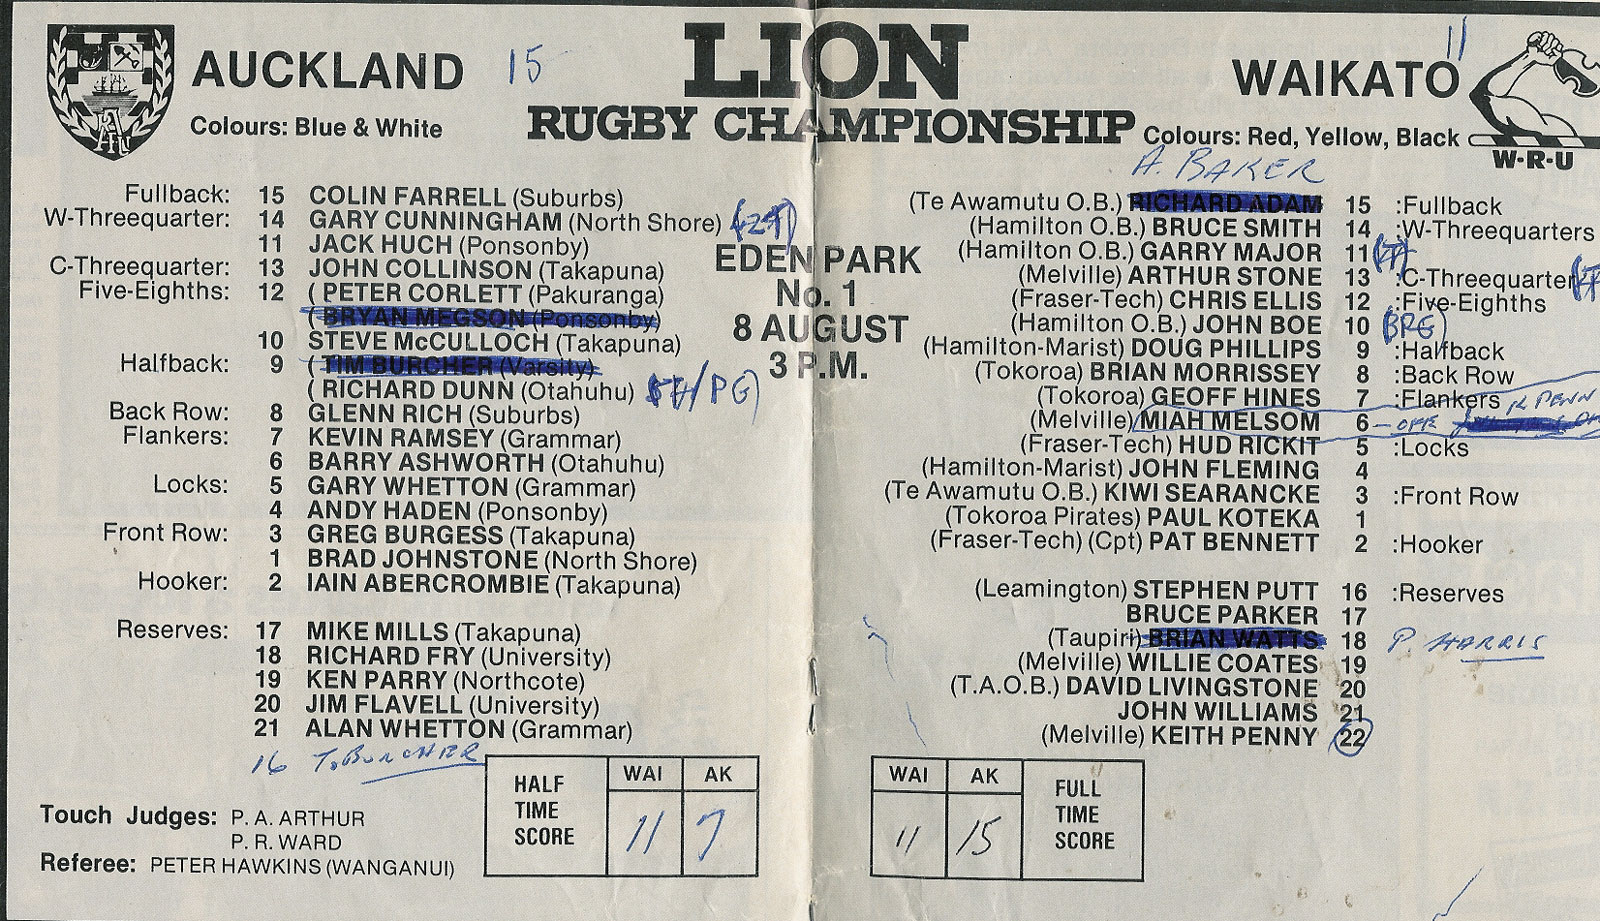 AUCKLAND 15
Colours: Blue & White
LION
RUGBY CHAMPIONSHIP
WAIKATO 11
Colours: Red, Yellow, Black
W·R·U
A. BAKER
Fullback: 15 COLIN FARRELL (Suburbs)
W-Threequarter: 14 GARY CUNNINGHAM (North Shore)
11 JACK HUCH (Ponsonby)
C-Threequarter: 13 JOHN COLLINSON (Takapuna)
Five-Eighths: 12 ( PETER CORLETT (Pakuranga)
( BRYAN MEGSON (Ponsonby)
10 STEVE McCULLOCH (Takapuna)
Halfback: 9 ( TIM BURCHER (Varsity)
( RICHARD DUNN (Otahuhu)
Back Row: 8 GLENN RICH (Suburbs)
Flankers: 7 KEVIN RAMSEY (Grammar)
6 BARRY ASHWORTH (Otahuhu)
Locks: 5 GARY WHETTON (Grammar)
4 ANDY HADEN (Ponsonby)
Front Row: 3 GREG BURGESS (Takapuna)
1 BRAD JOHNSTONE (North Shore)
Hooker: 2 IAIN ABERCROMBIE (Takapuna)
Reserves: 17 MIKE MILLS (Takapuna)
18 RICHARD FRY (University)
19 KEN PARRY (Northcote)
20 JIM FLAVELL (University)
21 ALAN WHETTON (Grammar)
16 T. BURCHER
Touch Judges: P. A. ARTHUR
P. R. WARD
Referee: PETER HAWKINS (WANGANUI)
HALF TIME SCORE
WAI AK
11 7
EDEN PARK
No. 1
8 AUGUST
3 P.M.
(Te Awamutu O.B.) RICHARD ADAM 15 :Fullback
(Hamilton O.B.) BRUCE SMITH 14 :W-Threequarters
(Hamilton O.B.) GARRY MAJOR 11 (T)
(Melville) ARTHUR STONE 13 :C-Threequarter
(Fraser-Tech) CHRIS ELLIS 12 :Five-Eighths
(Hamilton O.B.) JOHN BOE 10
(Hamilton-Marist) DOUG PHILLIPS 9 :Halfback
(Tokoroa) BRIAN MORRISSEY 8 :Back Row
(Tokoroa) GEOFF HINES 7 :Flankers K PENNY
(Melville) MIAH MELSOM 6 - OFF
(Fraser-Tech) HUD RICKIT 5 :Locks
(Hamilton-Marist) JOHN FLEMING 4
(Te Awamutu O.B.) KIWI SEARANCKE 3 :Front Row
(Tokoroa Pirates) PAUL KOTEKA 1
(Fraser-Tech) (Cpt) PAT BENNETT 2 :Hooker
(Leamington) STEPHEN PUTT 16 :Reserves
BRUCE PARKER 17
(Taupiri) BRIAN WATTS 18 P. HARRIS
(Melville) WILLIE COATES 19
(T.A.O.B.) DAVID LIVINGSTONE 20
JOHN WILLIAMS 21
(Melville) KEITH PENNY 22
WAI AK
11 15
FULL TIME SCORE